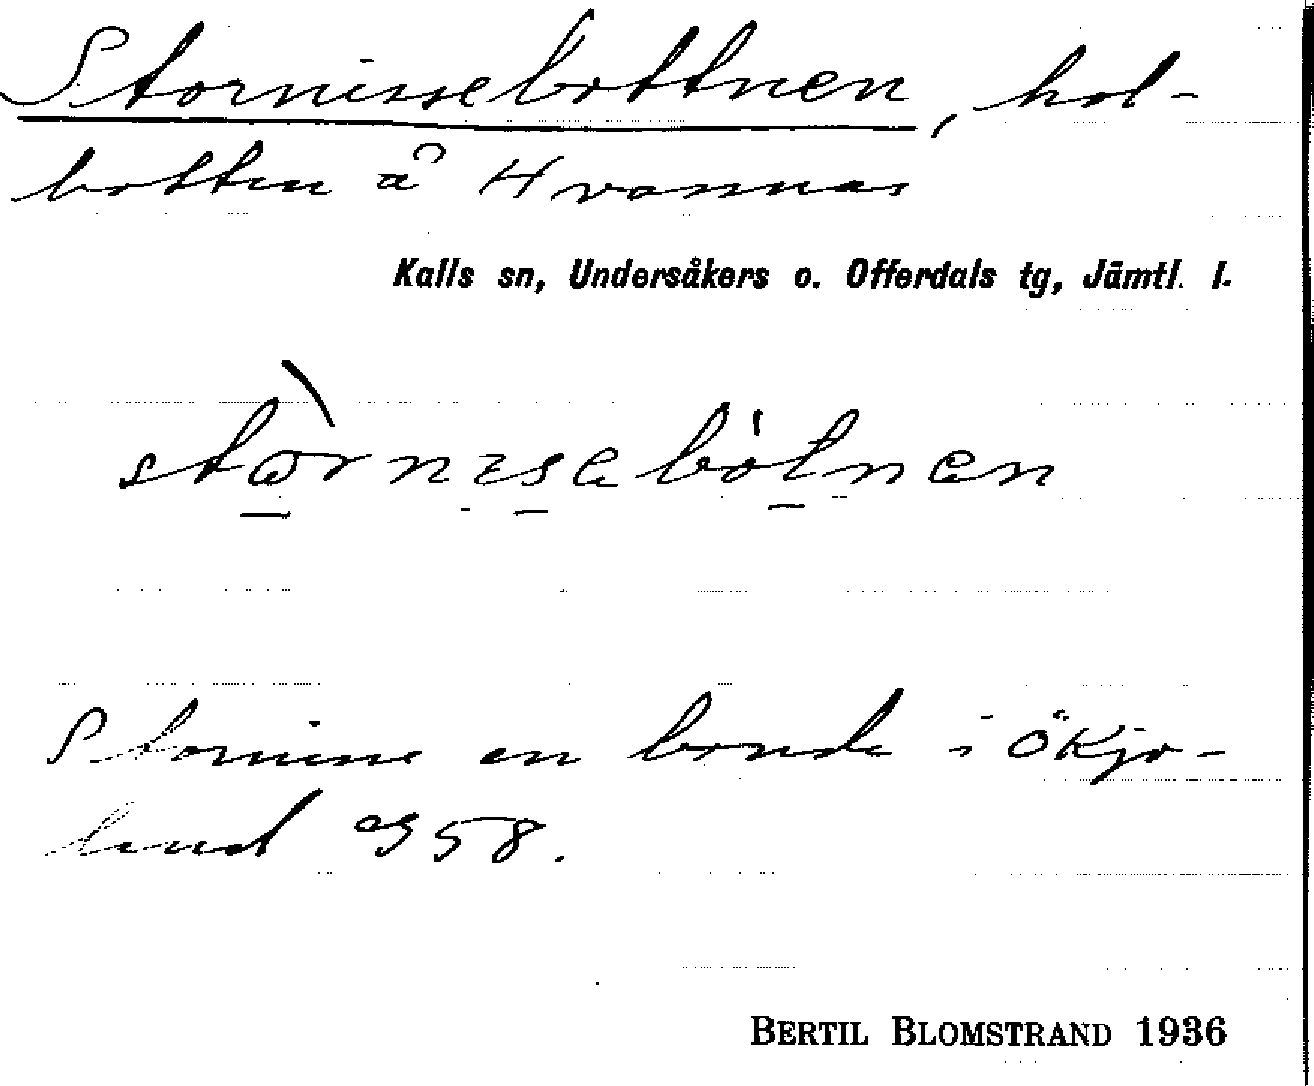 Stornissebottnen, kol-
botten å Hvasnnas
Kalls sn, Undersåkers o. Offerdals tg, Jämtl. l.
stornisebotnen
Stornisse en bonde i Ökjo-
lund 958.
BERTIL BLOMSTRAND 1936